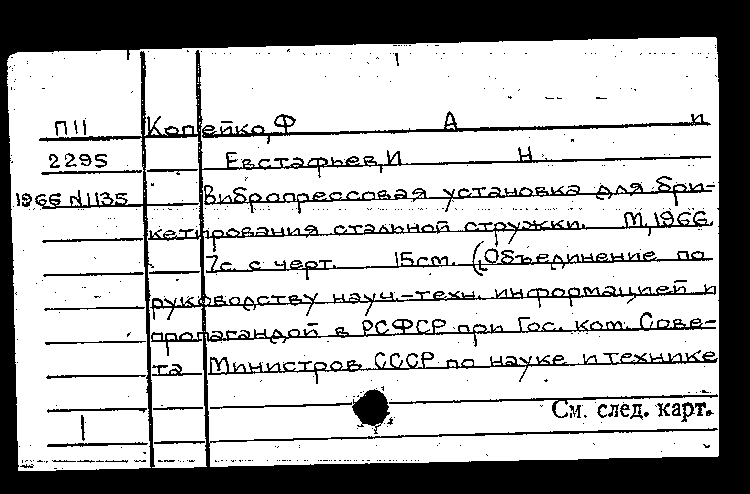 П11 Копейко, Ф А и
2295 Евстафьев, И Н
1966 N1135 Вибропрессовая установка для бри-
кетирования стальной стружки. М, 1966.
7с. с черт. 15см. (Объединение по
руководству науч.-техн. информацией и
пропагандой в РСФСР при Гос. ком. Сове-
та Министров СССР по науке и технике
См. след. карт.